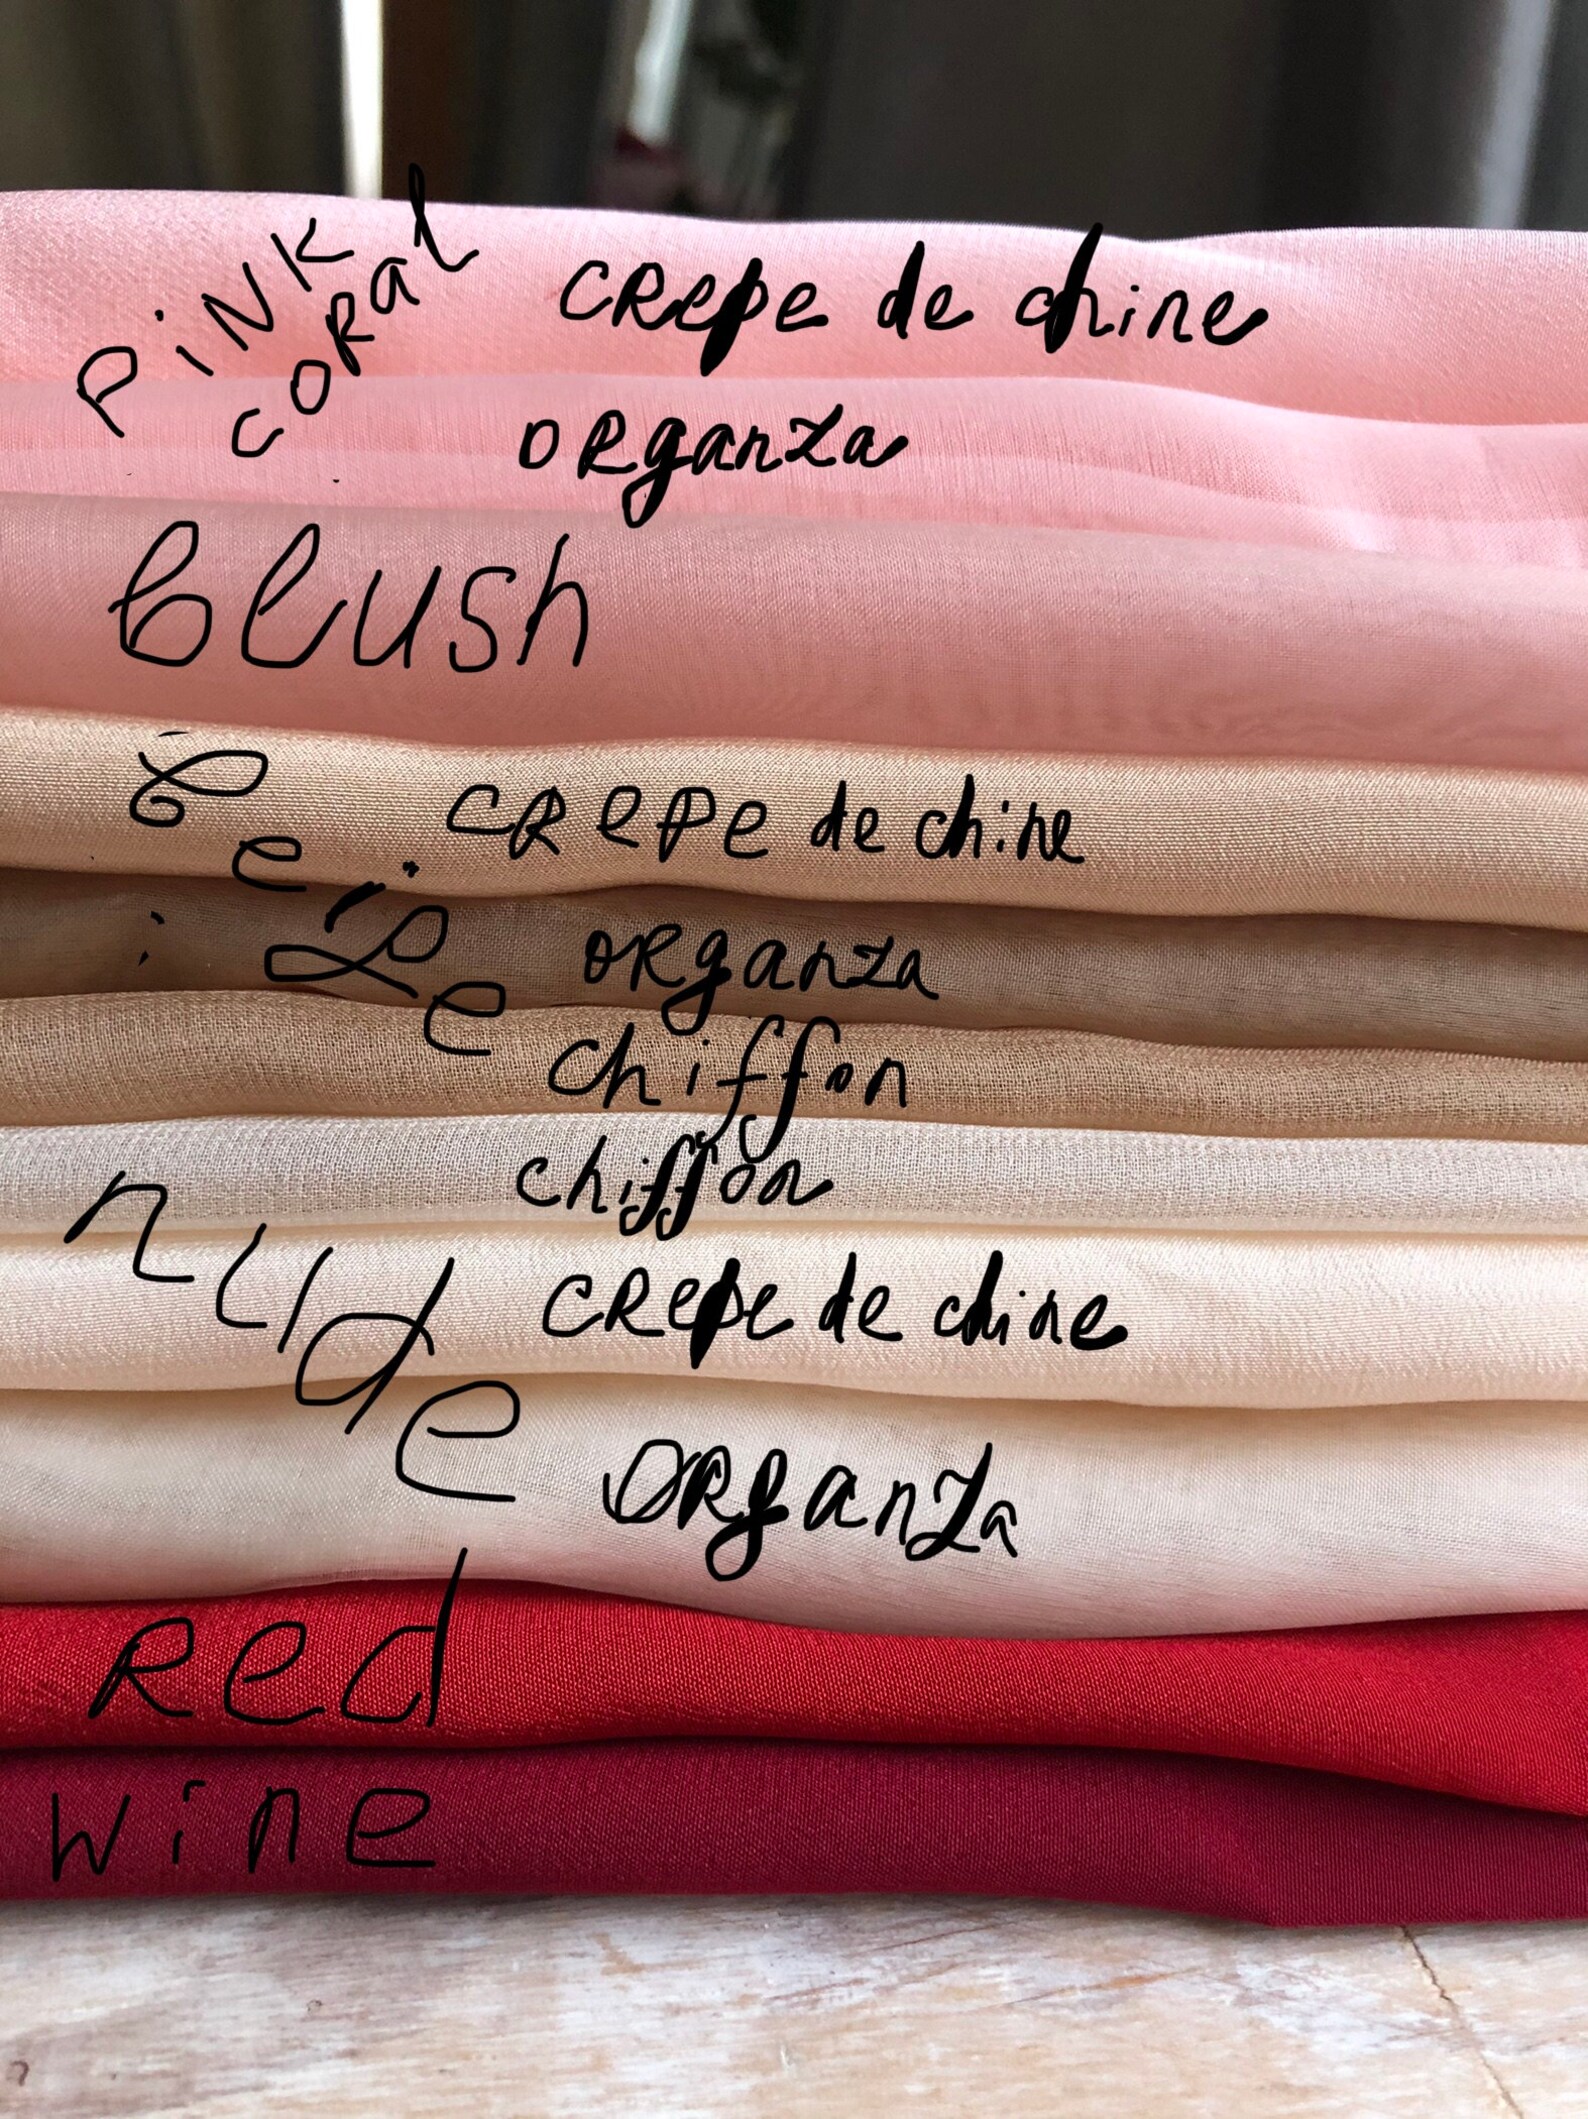 PiNK
coral
crepe de chine
organza
blush
beige
crepe de chine
organza
chiffon
chiffon
nude
crepe de chine
organza
red
wine